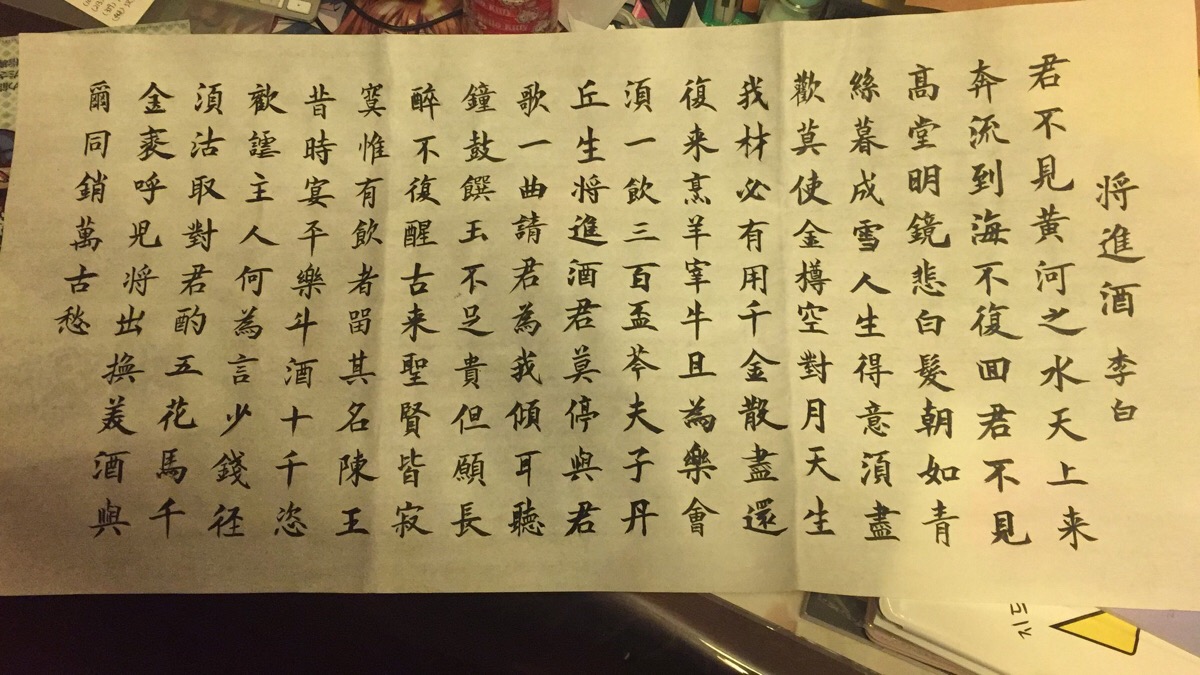 將進酒 李白
君不見黃河之水天上来
奔流到海不復回君不見
高堂明鏡悲白髮朝如青
絲暮成雪人生得意須盡
歡莫使金樽空對月天生
我材必有用千金散盡還
復来烹羊宰牛且為樂會
須一飲三百盃岑夫子丹
丘生將進酒君莫停與君
歌一曲請君為我傾耳聽
鐘鼓饌玉不足貴但願長
醉不復醒古来聖賢皆寂
寞惟有飲者留其名陳王
昔時宴平樂斗酒十千恣
歡謔主人何為言少錢径
須沽取對君酌五花馬千
金裘呼児將出換美酒與
爾同銷萬古愁